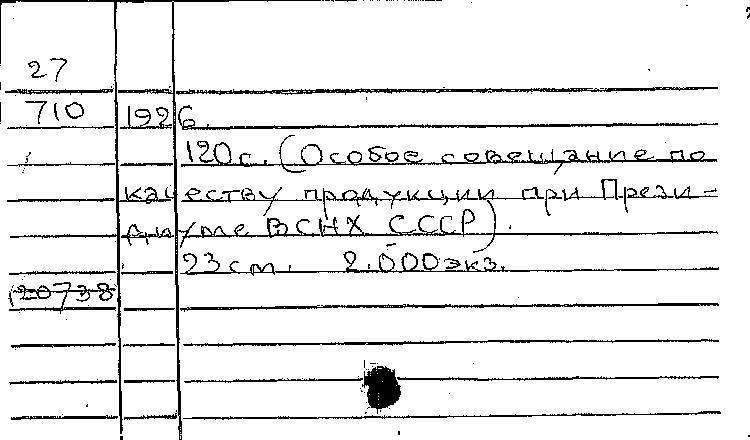 27
710 1926.
120 с. (Особое совещание по
качеству продукции при Прези-
диуме ВСНХ СССР).
23 cm. 2.000 экз.
20738